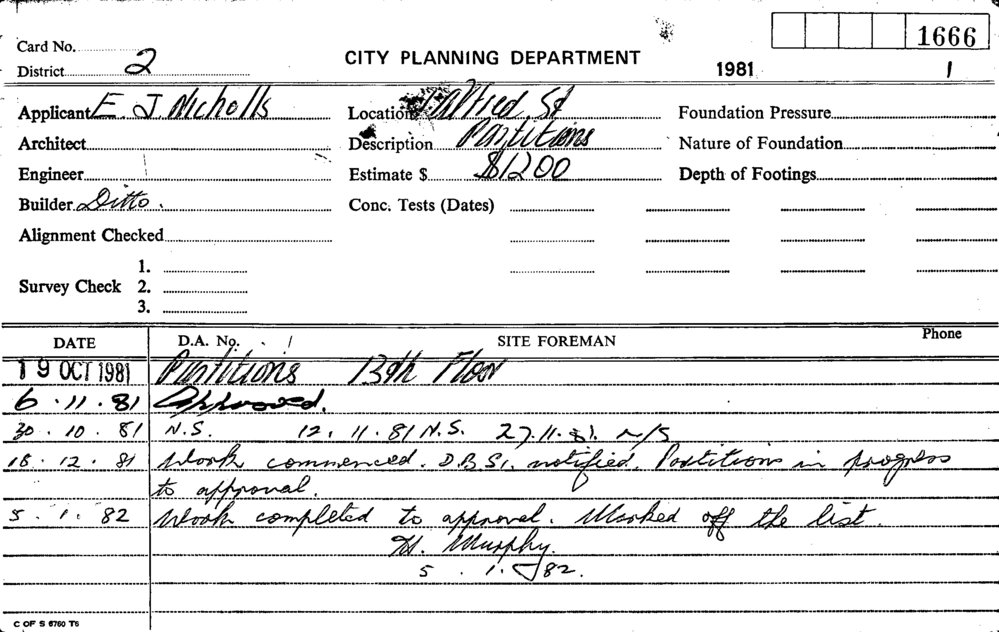 1666
Card No.
CITY PLANNING DEPARTMENT
District 2 1981 1
Applicant E. J. Nicholls Location 1 Alfred St Foundation Pressure
Architect Description Partitions Nature of Foundation
Engineer Estimate $ $1200 Depth of Footings
Builder Ditto. Conc. Tests (Dates)
Alignment Checked
1.
Survey Check 2.
3.
DATE D.A. No. SITE FOREMAN Phone
19 OCT 1981 Partitions 13th Floor
6 . 11 . 81 Approved.
30 . 10 . 81 N.S. 12. 11 . 81 N.S. 27.11.81. N/S
18 . 12 . 81 Work commenced. D.B.S. notified. Partitions in progress
to approval.
5 . 1 . 82 Work completed to approval. Marked off the list.
H. Murphy.
5 . 1. 82.
C OF S 6760 T6